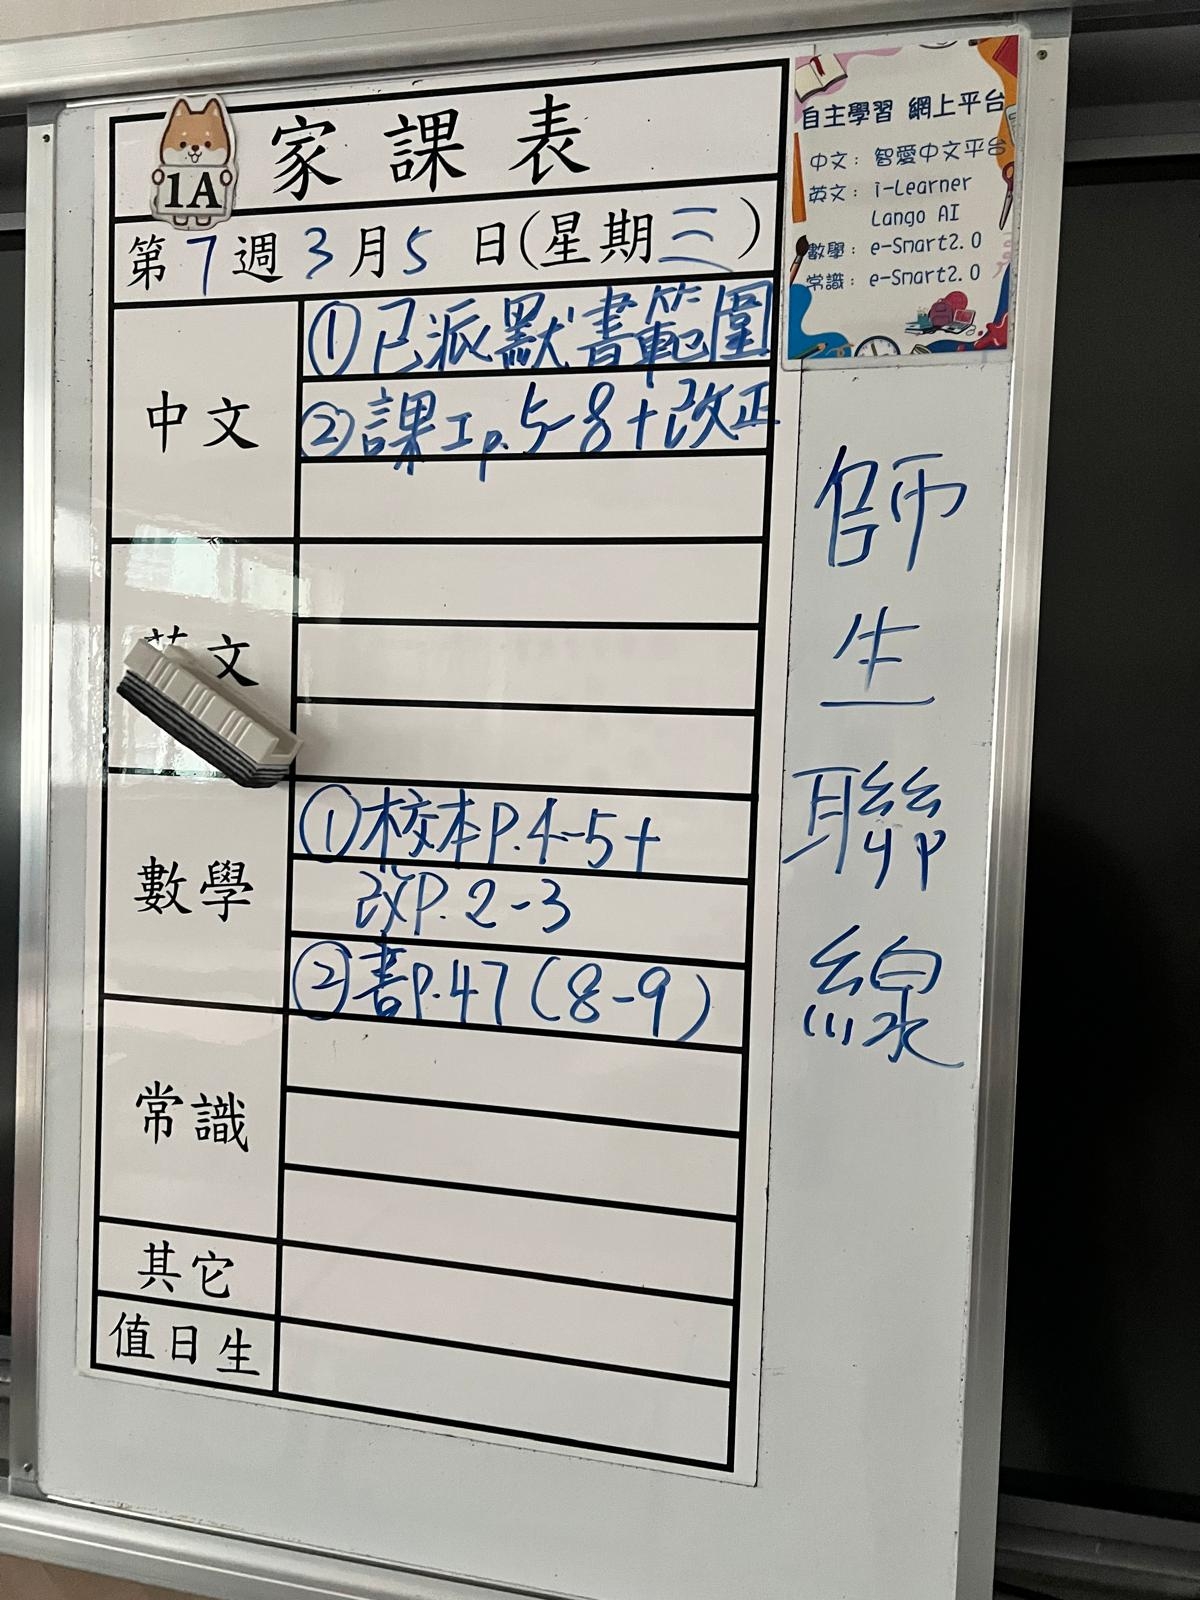 1A 家課表
第7週3月5日(星期三)
中文
①已派默書範圍
②課工p.5-8+改正
文
數學
①校本P.4-5+
改P.2-3
②書P.47(8-9)
常識
其它
值日生
自主學習 網上平台
中文：智愛中文平台
英文：i-Learner
Lango AI
數學：e-Smart2.0
常識：e-Smart2.0
師
生
聯
線